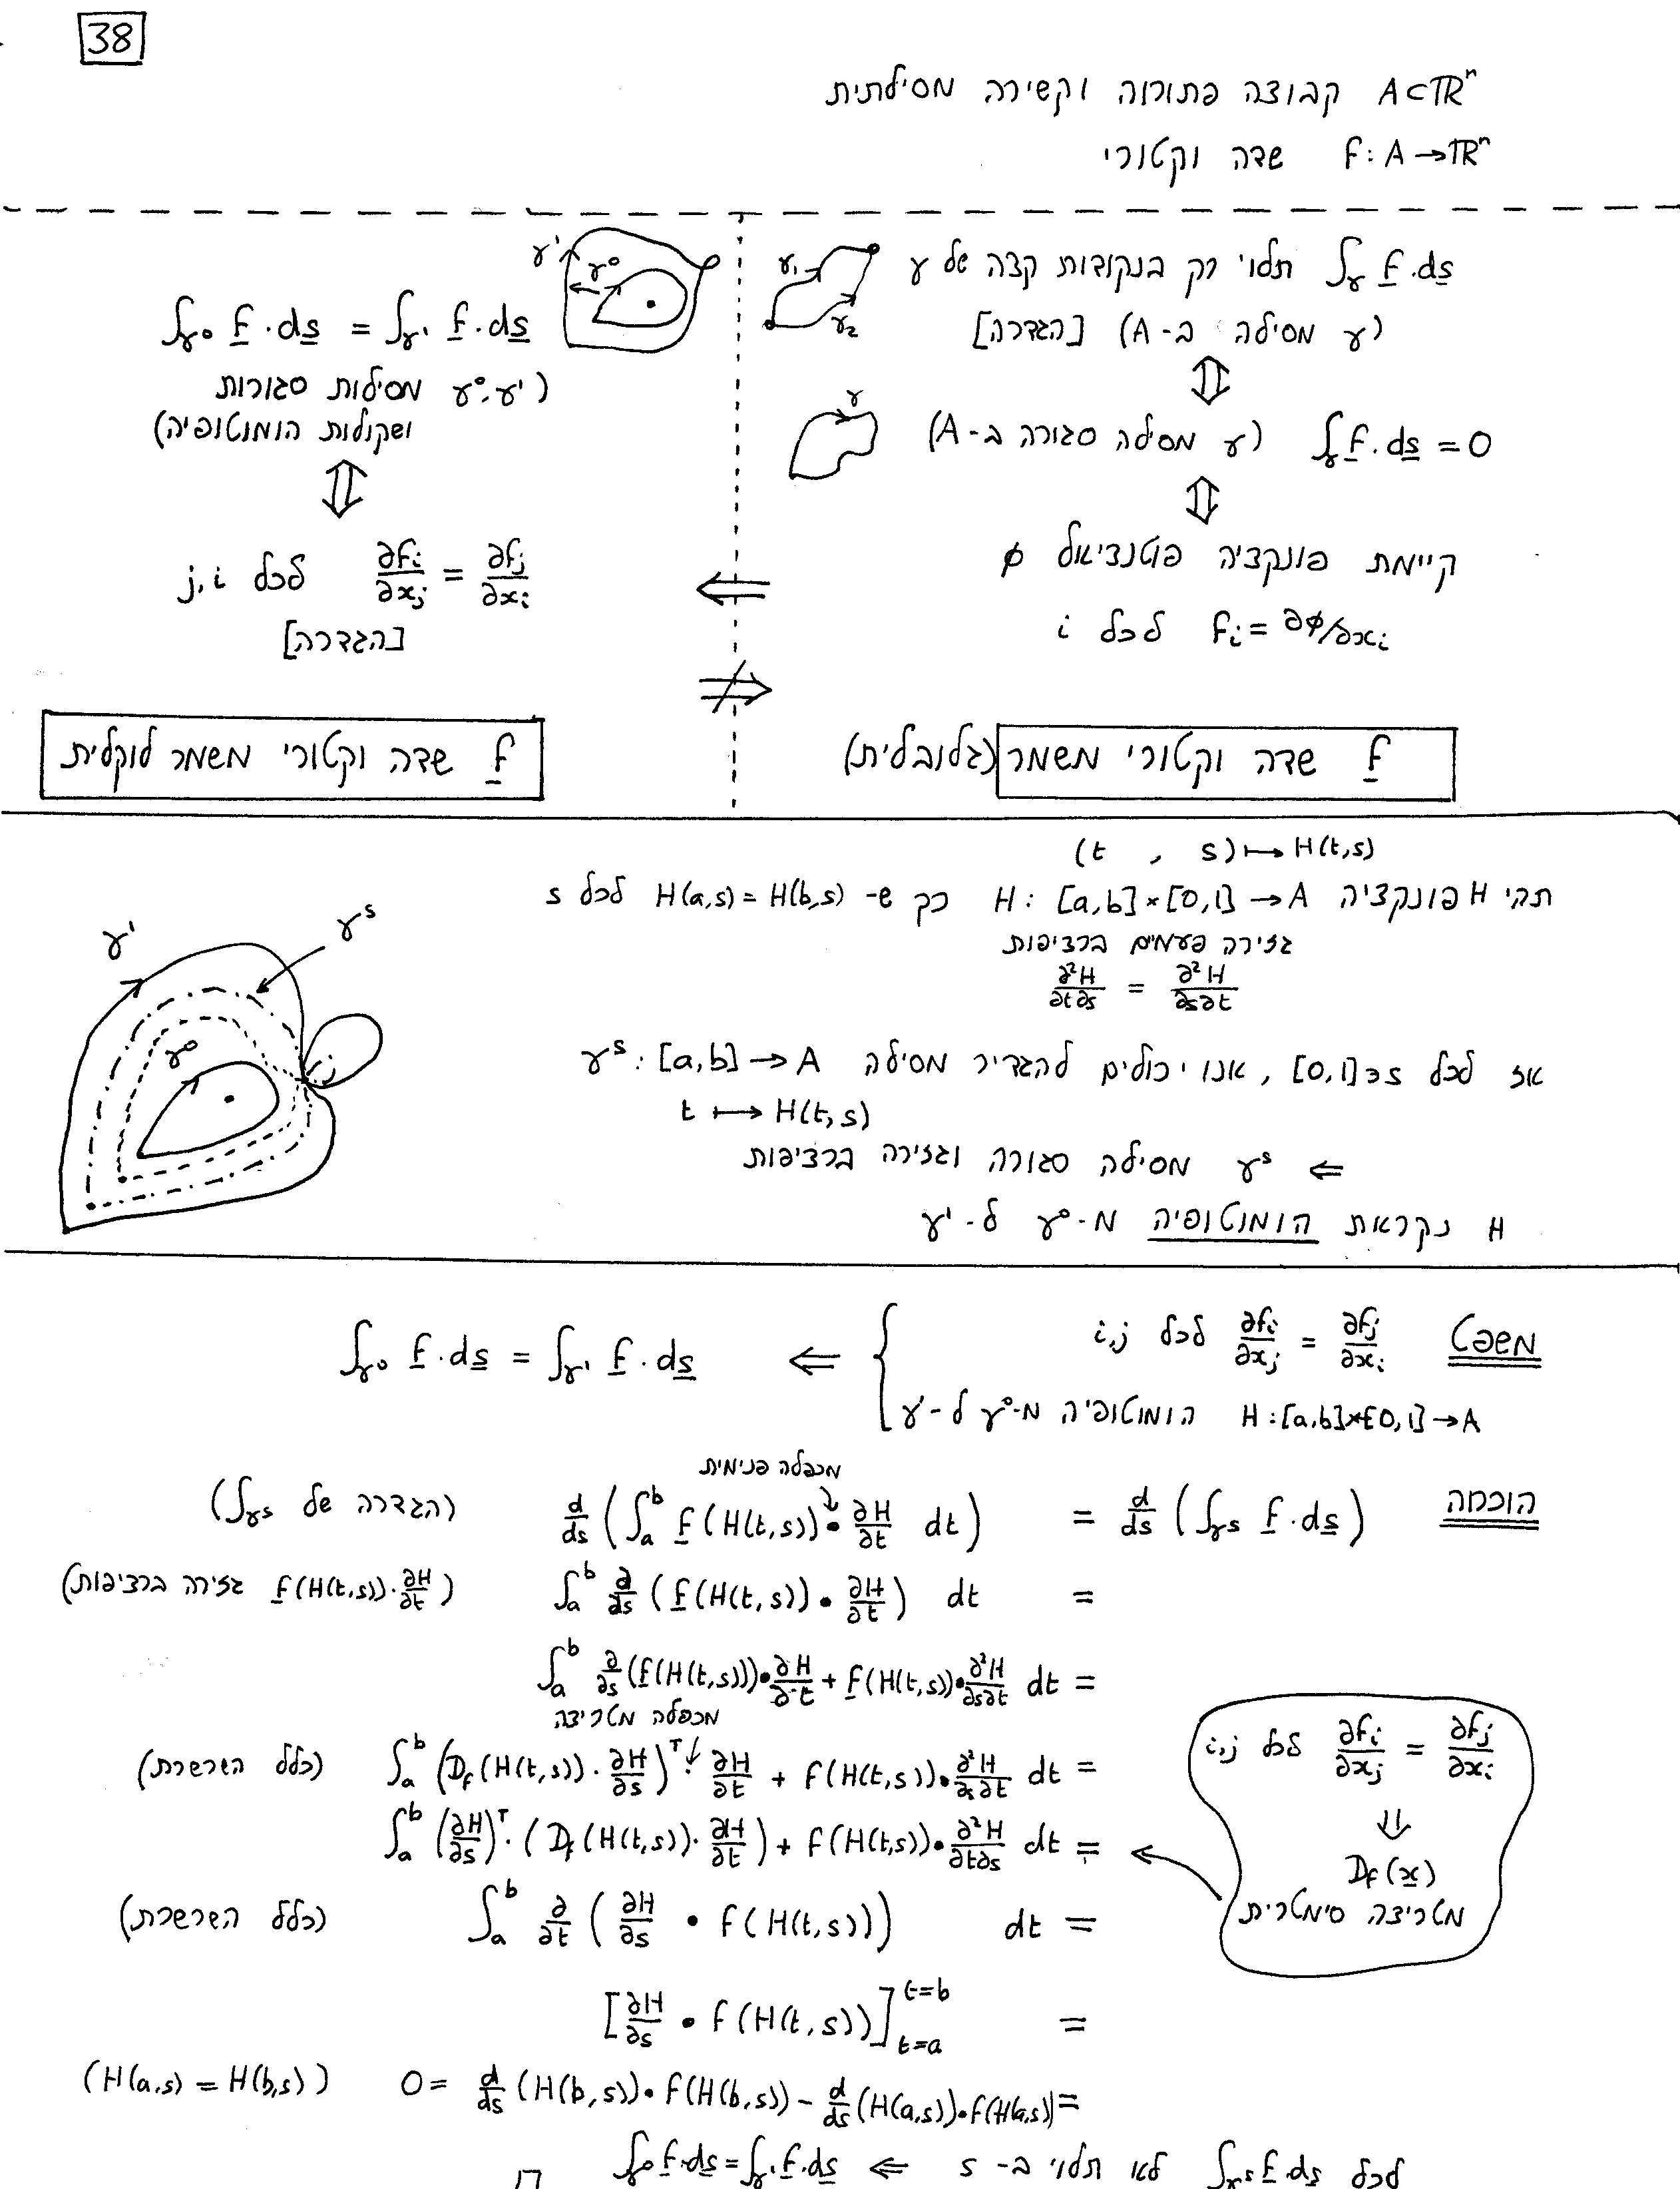 38
A⊂ℝⁿ קבוצה פתוחה וקשירה מסילתית
f: A→ℝⁿ שדה וקטורי
∫_γ f·ds תלוי רק בנקודות קצה של γ
(γ מסילה ב-A) [הגדרה]
γ₁
γ₂
⇕
∫_γ f·ds = 0 (γ מסילה סגורה ב-A)
γ
⇕
קיימת פונקציה פוטנציאל φ
f_i = ∂φ/∂x_i לכל i
⇐
⇏
f שדה וקטורי משמר (גלובלית)
γ¹ γ⁰
∫_γ⁰ f·ds = ∫_γ¹ f·ds
(γ⁰,γ¹ מסילות סגורות
ושקולות הומוטופיה)
⇕
∂f_i/∂x_j = ∂f_j/∂x_i לכל j,i
[הגדרה]
f שדה וקטורי משמר לוקלית
(t , s) ↦ H(t,s)
תהי H פונקציה H: [a,b]×[0,1] → A כך ש- H(a,s) = H(b,s) לכל s
גזירה פעמים ברציפות
∂²H/∂t∂s = ∂²H/∂s∂t
γ¹ γˢ
γ⁰
אז לכל s∈[0,1], אנו יכולים להגדיר מסילה γˢ: [a,b] → A
t ↦ H(t,s)
⇐ γˢ מסילה סגורה וגזירה ברציפות
H נקראת הומוטופיה מ-γ⁰ ל-γ¹
משפט ∂f_j/∂x_i = ∂f_i/∂x_j לכל i,j
H: [a,b]×[0,1] → A הומוטופיה מ-γ⁰ ל-γ¹
⇐ ∫_γ⁰ f·ds = ∫_γ¹ f·ds
מכפלה פנימית
הוכחה d/ds (∫_γˢ f·ds) = d/ds (∫_a^b f(H(t,s)) • ∂H/∂t dt) (הגדרה של ∫_γˢ)
= ∫_a^b ∂/∂s (f(H(t,s)) • ∂H/∂t) dt (f(H(t,s))·∂H/∂t גזירה ברציפות)
= ∫_a^b ∂/∂s (f(H(t,s))) • ∂H/∂t + f(H(t,s)) • ∂²H/∂s∂t dt
מכפלה מטריצה
= ∫_a^b (D_f(H(t,s)) · ∂H/∂s)ᵀ · ∂H/∂t + f(H(t,s)) • ∂²H/∂s∂t dt (כלל השרשרת)
= ∫_a^b (∂H/∂s)ᵀ · (D_f(H(t,s)) · ∂H/∂t) + f(H(t,s)) • ∂²H/∂t∂s dt
∂f_j/∂x_i = ∂f_i/∂x_j לכל i,j
⇓
D_f(x)
מטריצה סימטרית
= ∫_a^b ∂/∂t (∂H/∂s • f(H(t,s))) dt (כלל השרשרת)
= [∂H/∂s • f(H(t,s))]_{t=a}^{t=b}
= d/ds (H(b,s)) • f(H(b,s)) − d/ds (H(a,s)) • f(H(a,s)) = 0 (H(a,s) = H(b,s))
לכל ∫_γˢ f·ds לא תלוי ב- s ⇐ ∫_γ⁰ f·ds = ∫_γ¹ f·ds